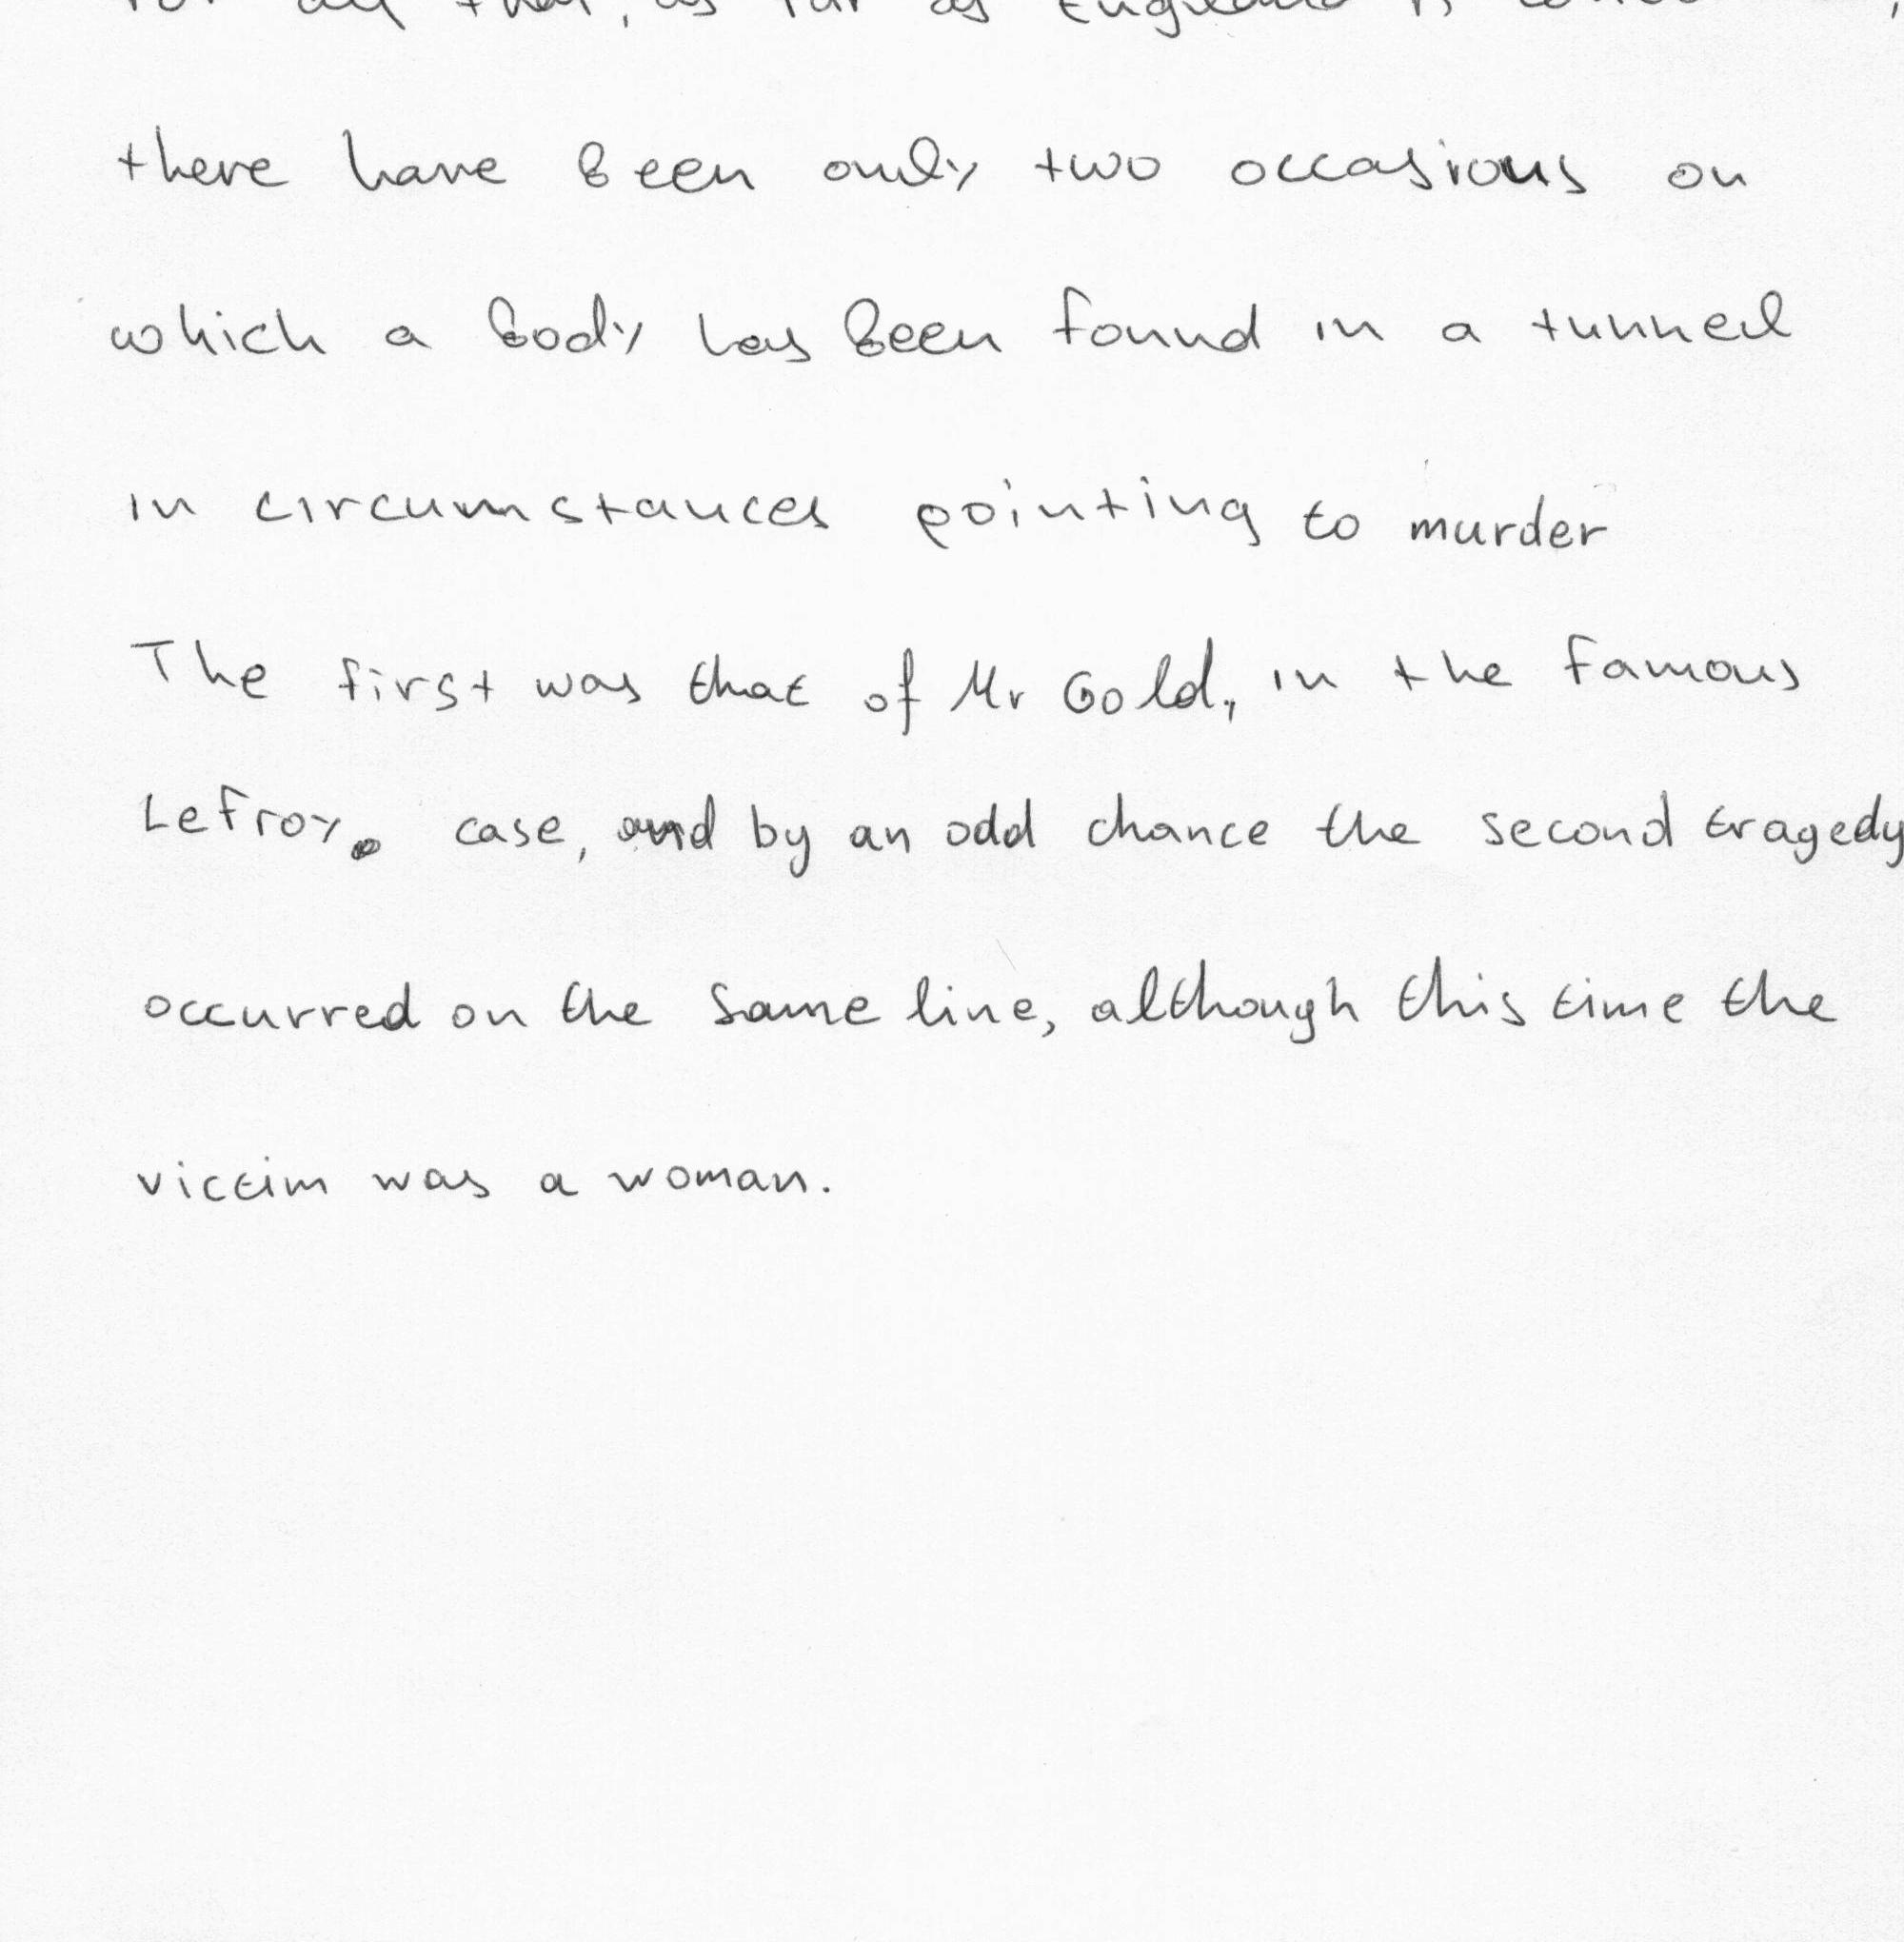 for all that, as far as England is
there have been only two occasions on
which a body has been found in a tunnel
in circumstances pointing to murder
The first was that of Mr Gold, in the famous
Lefroy. case, and by an odd chance the second tragedy
occurred on the same line, although this time the
victim was a woman.